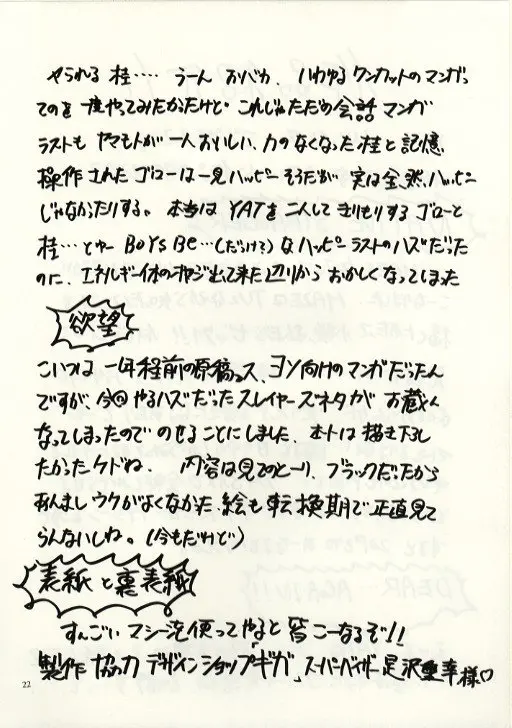 やられる 桂‥‥ うーん おバカ、いわゆるワンカットのマンガっ
てのを一度やってみたかたけど これじゃただの会話マンガ
ラストも ヤマモトが一人おいしい、力のなくなった桂と記憶
操作された ゴローは一見ハッピーそうだが 実は全然、ハッピー
じゃなかたりする。本当は YATを二人して きりもりする ゴローと
桂…とか BOYS BE…(だっけ?)な ハッピーラストのハズだった
のに、エネルギー体のオヤジ出て来た辺りから おかしくなってしまった
欲望
こいつは 一年程前の原稿っス、ヨソ向けのマンガだったん
ですが、今回やるハズだったスレイヤーズネタが お蔵入
なってしまったので のせることにしました、ホントは描き下し
たかたケドね。内容は見てのとーり、ブラックだったから
あんましウケがよくなかた、絵も転換期で正直見て
らんないしね。(今もだけれど)
表紙と裏表紙
すんごい マシーン使ってやると 皆こーなるぞ!!
製作協力 デザインショップ「ギガ」スーパーバイザー 足沢重幸様♡
22